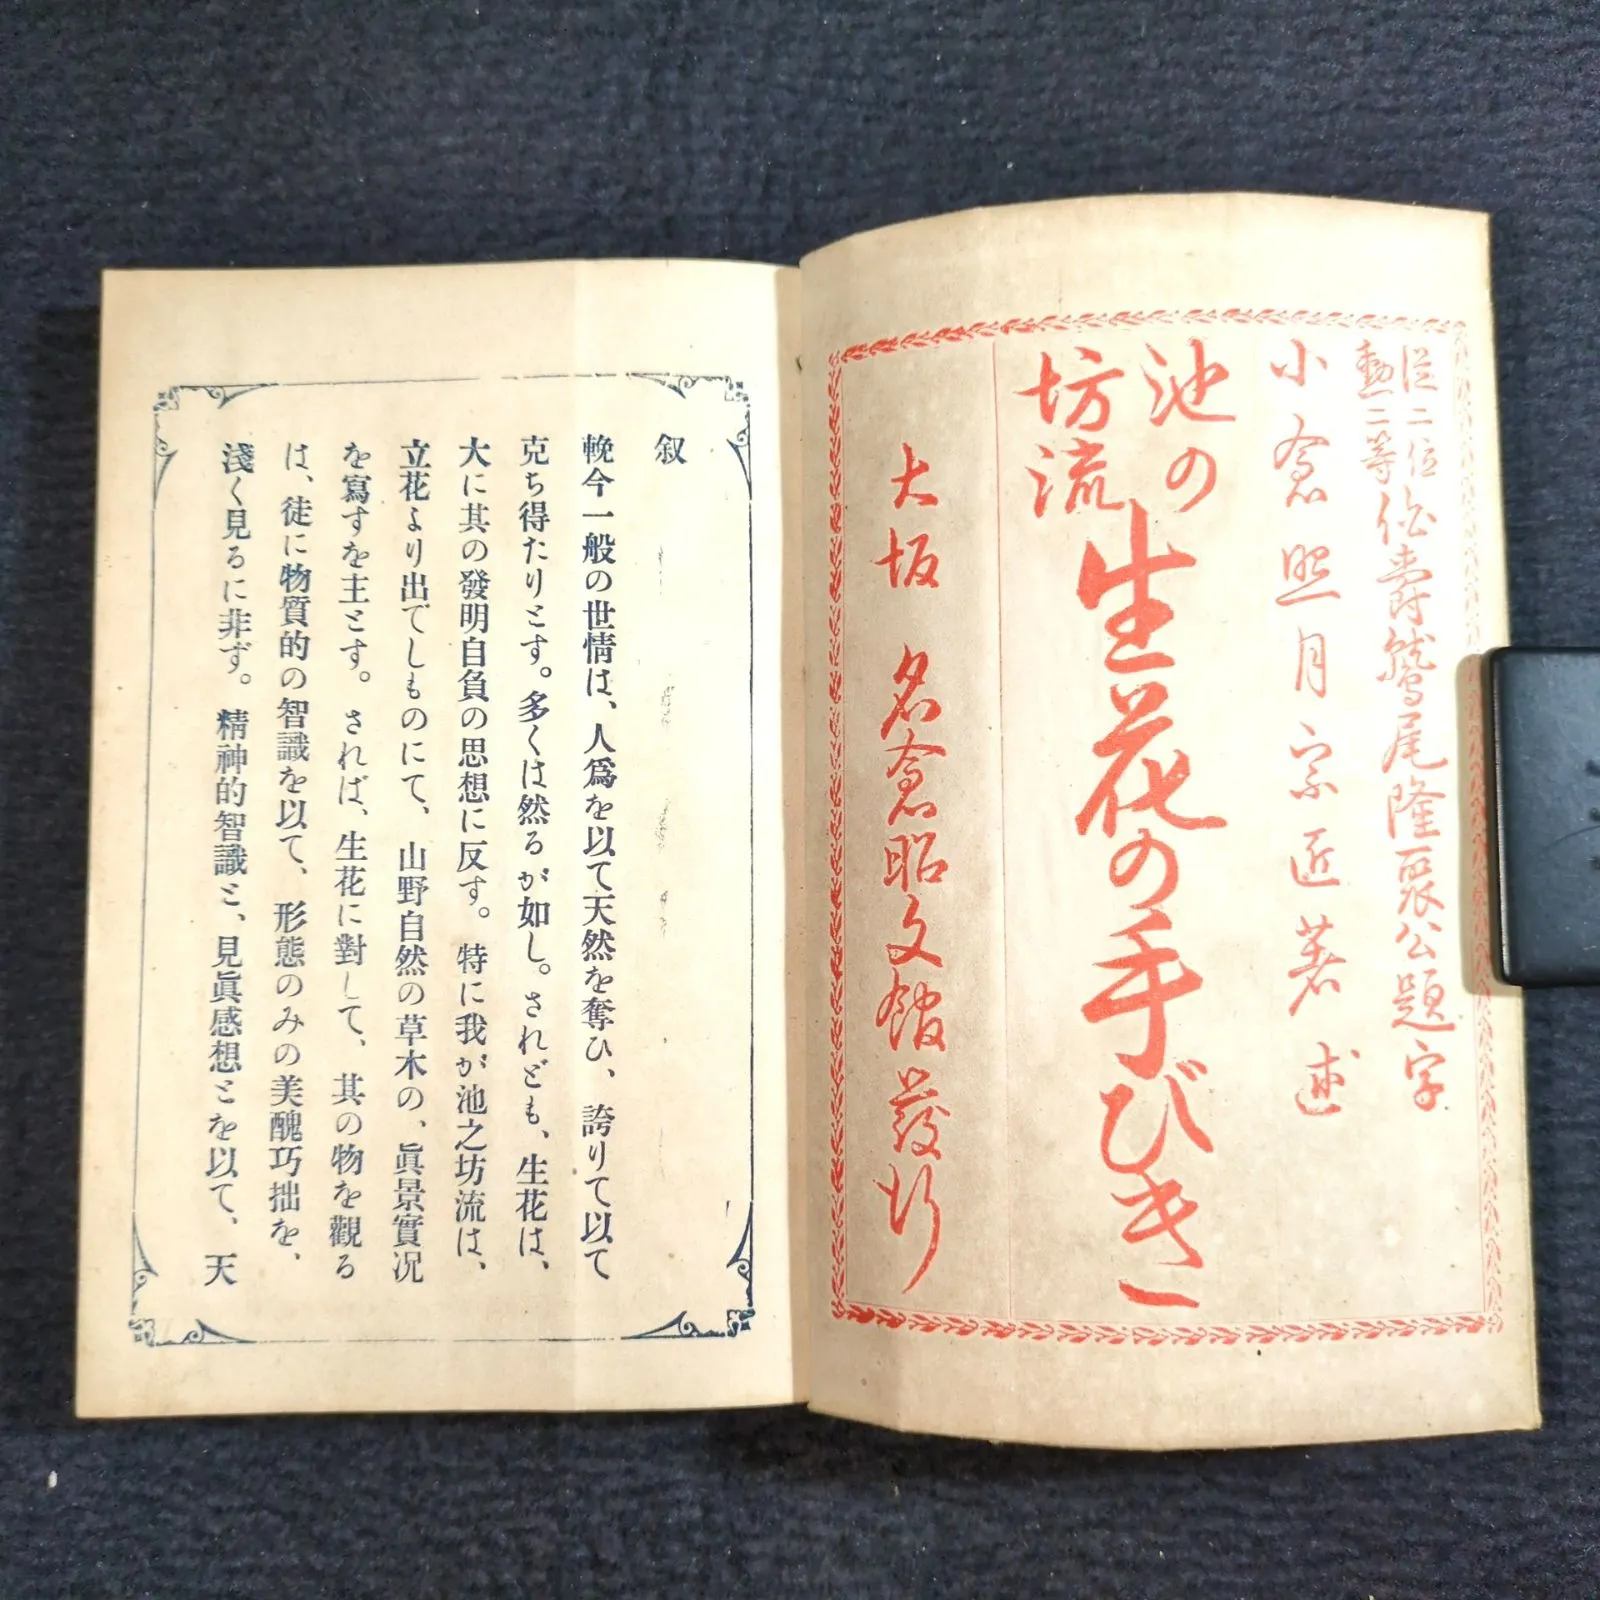 従二位
勲二等
伯爵鷲尾隆聚公題字
小倉照月宗匠著述
池の
坊流
生花の手びき
大坂　名倉昭文館發行
叙
輓今一般の世情は、人爲を以て天然を奪ひ、誇りて以て
克ち得たりとす。多くは然るが如し。されども、生花は、
大に其の發明自負の思想に反す。特に我が池之坊流は、
立花より出でしものにて、山野自然の草木の、眞景實況
を寫すを主とす。されば、生花に對して、其の物を觀る
は、徒に物質的の智識を以て、形態のみの美醜巧拙を、
淺く見るに非ず。精神的智識と、見眞感想とを以て、天